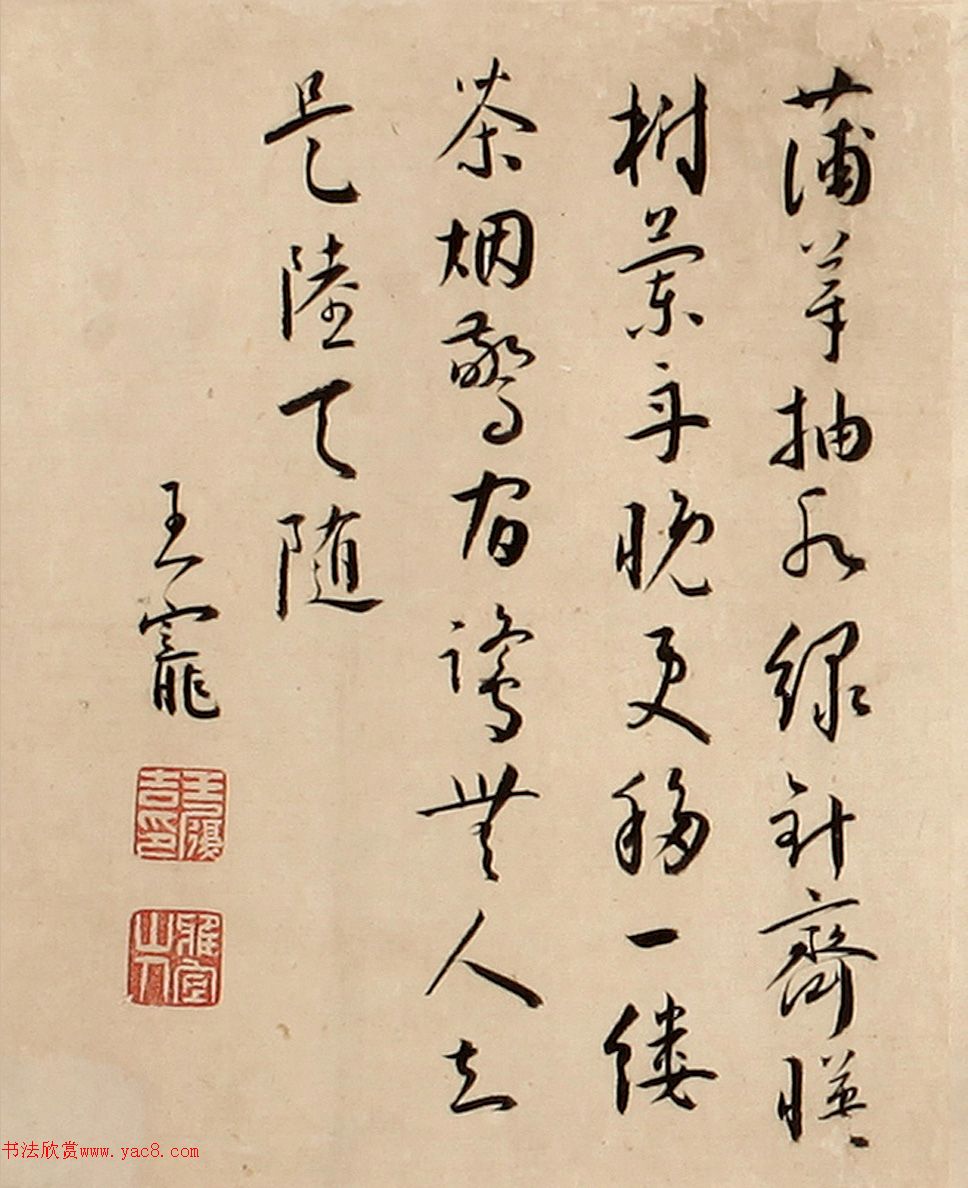 蒲芽抽水綠針齊暎
樹蘭舟晚更移一縷
茶烟驚宿鷺無人知
是陸天随
王寵
王履吉印
雅宜山人
书法欣赏www.yac8.com